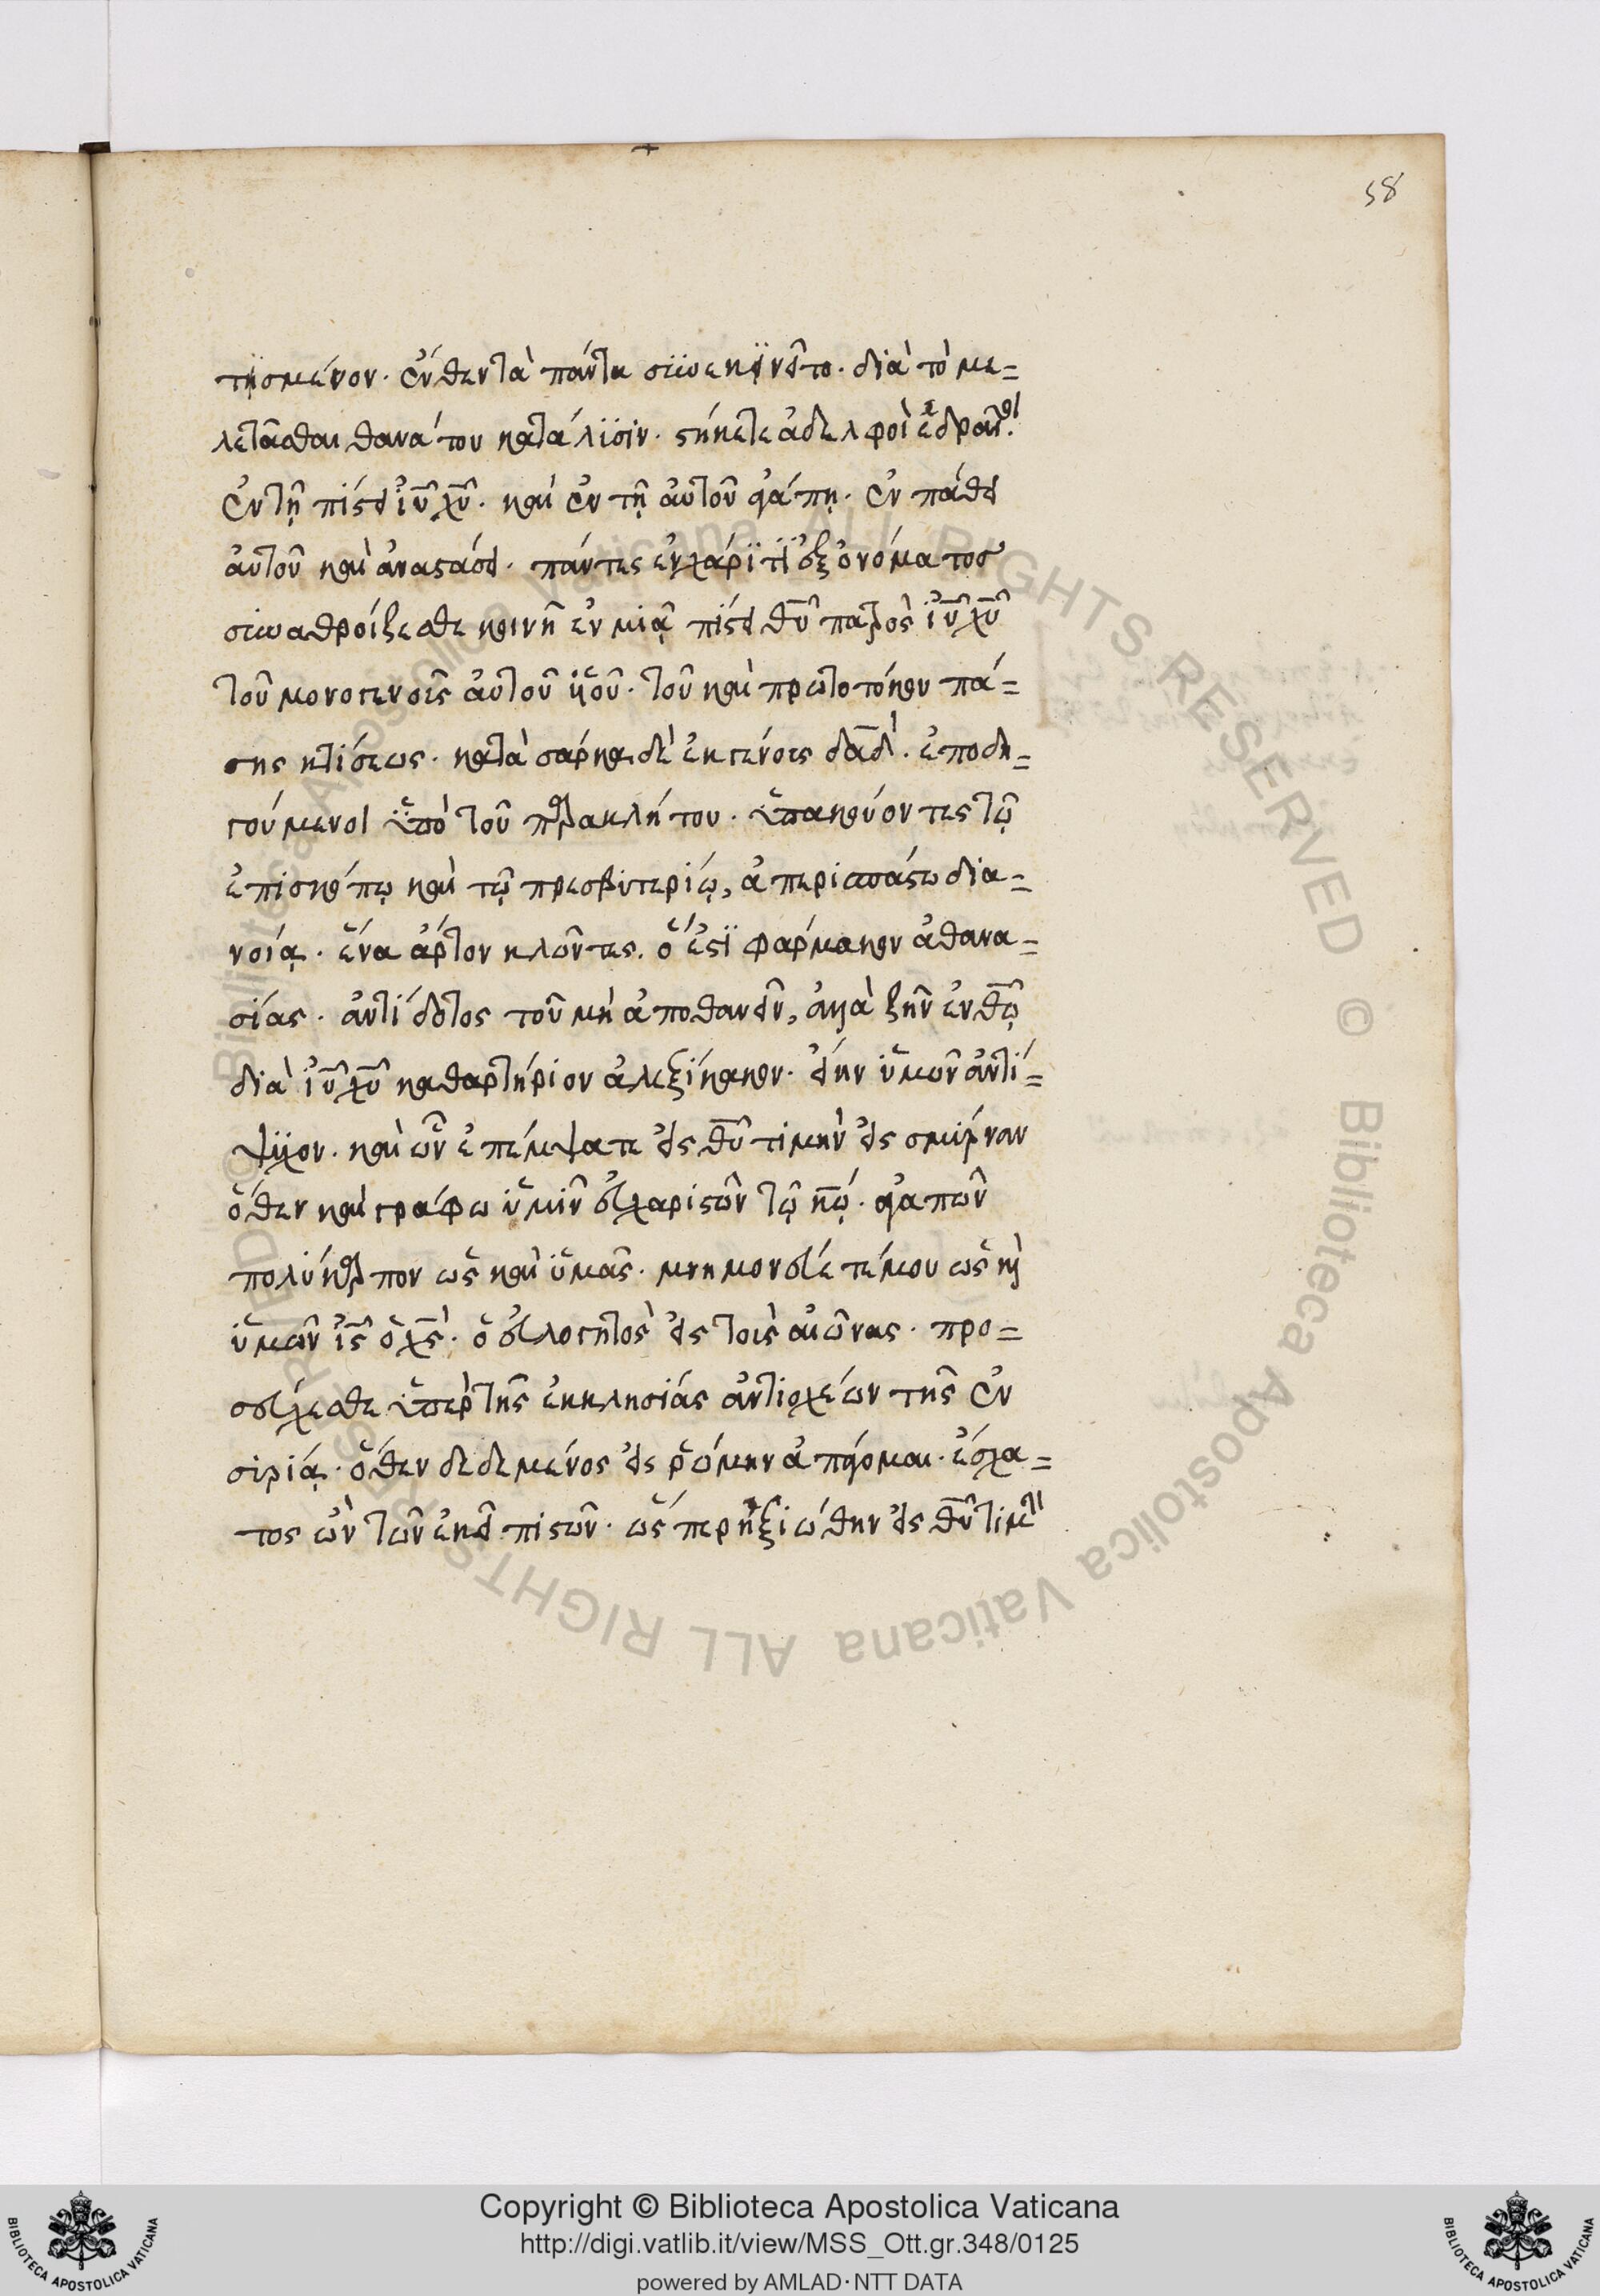 58
τησμένον. ἔνθεν τὰ πάντα συνεκϊνεῖτο. διὰ τὸ με=
λετᾶσθαι θανάτου κατάλϊσιν. στήκετε ἀδελφοὶ ἑδραῖοι
ἐν τῇ πίστει ἰῦ χῦ. καὶ ἐν τῇ αὐτοῦ ἀγάπῃ. ἐν πάθει
αὐτοῦ καὶ ἀναστάσει. πάντες ἐν χάρϊτϊ ἐξ ὀνόματος
συναθροίζεσθε κοινῇ ἐν μιᾷ πίστει θῦ πατρὸς ἰῦ χῦ
τοῦ μονογενοῦς αὐτοῦ ὑϊοῦ. τοῦ καὶ πρωτοτόκου πά=
σης κτίσεως. κατὰ σάρκα δὲ ἐκ γένους δᾱδ. ἐποδη=
γούμενοι ὑπὸ τοῦ παρακλήτου. ὑπακούοντες τῷ
ἐπισκόπῳ καὶ τῷ πρεσβυτερίῳ, ἀπερισπάστω δια=
νοίᾳ. ἕνα ἄρτον κλῶντες. ὅ ἐστϊ φάρμακον ἀθανα=
σίας. ἀντίδοτος τοῦ μὴ ἀποθανεῖν, ἀλλὰ ζῆν ἐν θῷ
διὰ ἰῦ χῦ καθαρτήριον ἀλεξίκακον. εἴην ὑμῶν ἀντί=
ψϋχον. καὶ ὧν ἐπέμψατε εἰς θῦ τιμὴν εἰς σμύρναν
ὅθεν καὶ γράφω ὑμῖν εὐχαριστῶν τῷ κῷ. ἀγαπῶν
πολύκαρπον ὡς καὶ ὑμᾶς. μνημονεύετέ μου ὡς καὶ
ὑμῶν ἰς ὁ χς. ὁ εὐλογητὸς εἰς τοὺς αἰῶνας. προ=
σεύχεσθε ὑπὲρ τῆς ἐκκλησίας ἀντιοχέων τῆς ἐν
συρίᾳ. ὅθεν δεδεμένος εἰς ῥώμην ἀπάγομαι. ἔσχα=
τος ὢν τῶν ἐκεῖ πιστῶν. ὥσπερ ἠξιώθην εἰς θῦ τιμὴν
Copyright © Biblioteca Apostolica Vaticana
http://digi.vatlib.it/view/MSS_Ott.gr.348/0125
powered by AMLAD·NTT DATA